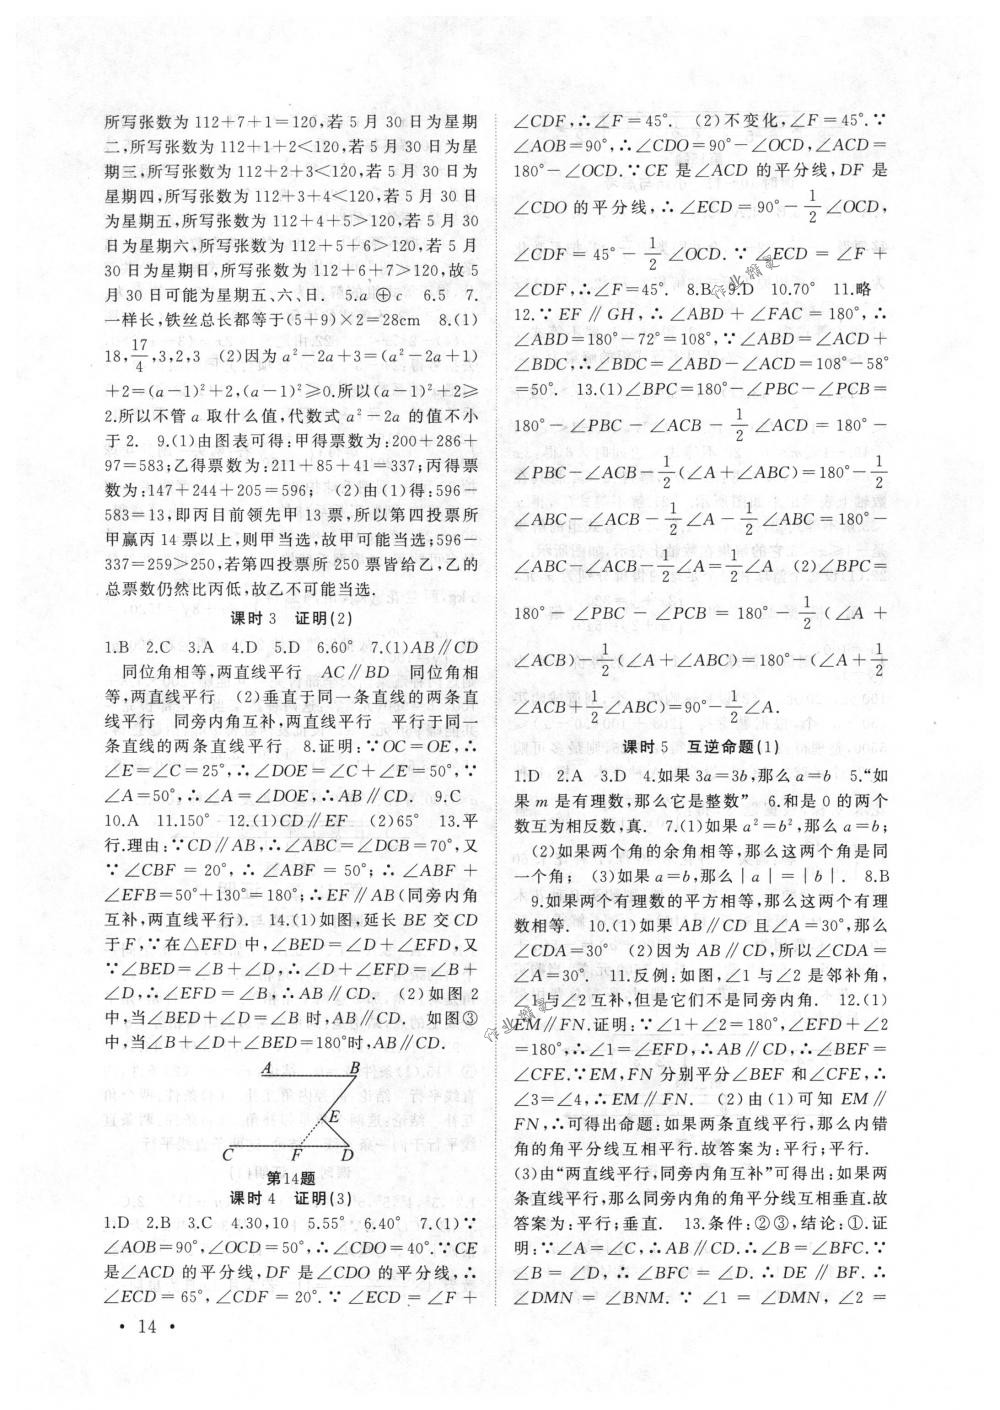 所写张数为112+7+1=120,若5月30日为星期
二,所写张数为112+1+2<120,若5月30日为星
期三,所写张数为112+2+3<120,若5月30日为
星期四,所写张数为112+3+4<120,若5月30日
为星期五,所写张数为112+4+5>120,若5月30
日为星期六,所写张数为112+5+6>120,若5月
30日为星期日,所写张数为112+6+7>120,故5
月30日可能为星期五、六、日. 5.a⊕c 6.5 7.
一样长,铁丝总长都等于(5+9)×2=28cm 8.(1)
18,17/4,3,2,3 (2)因为a²-2a+3=(a²-2a+1)
+2=(a-1)²+2,(a-1)²≥0.所以(a-1)²+2≥
2.所以不管a取什么值,代数式a²-2a的值不小
于2. 9.(1)由图表可得:甲得票数为:200+286+
97=583;乙得票数为:211+85+41=337;丙得票
数为:147+244+205=596; (2)由(1)得:596-
583=13,即丙目前领先甲13票,所以第四投票所
甲赢丙14票以上,则甲当选,故甲可能当选;596-
337=259>250,若第四投票所250票皆给乙,乙的
总票数仍然比丙低,故乙不可能当选.
课时3 证明(2)
1.B 2.C 3.A 4.D 5.D 6.60° 7.(1)AB∥CD
同位角相等,两直线平行 AC∥BD 同位角相
等,两直线平行 (2)垂直于同一条直线的两条直
线平行 同旁内角互补,两直线平行 平行于同一
条直线的两条直线平行 8.证明:∵OC=OE,∴
∠E=∠C=25°,∴∠DOE=∠C+∠E=50°,∵
∠A=50°,∴∠A=∠DOE,∴AB∥CD. 9.C
10.A 11.150° 12.(1)CD∥EF (2)65° 13.平
行.理由:∵CD∥AB,∴∠ABC=∠DCB=70°,又
∵∠CBF=20°,∴∠ABF=50°;∴∠ABF+
∠EFB=50°+130°=180°;∴EF∥AB(同旁内角
互补,两直线平行). 14.(1)如图,延长BE交CD
于F,∵在△EFD中,∠BED=∠D+∠EFD,又
∵∠BED=∠B+∠D,∴∠D+∠EFD=∠B+
∠D,∴∠EFD=∠B,∴AB∥CD. (2)如图2
中,当∠BED+∠D=∠B时,AB∥CD. 如图③
中,当∠B+∠D+∠BED=180°时,AB∥CD.
A B
E
C F D
第14题
课时4 证明(3)
1.D 2.B 3.C 4.30,10 5.55° 6.40° 7.(1)∵
∠AOB=90°,∠OCD=50°,∴∠CDO=40°.∵CE
是∠ACD的平分线,DF是∠CDO的平分线,∴
∠ECD=65°,∠CDF=20°.∵∠ECD=∠F+
• 14 •
∠CDF,∴∠F=45°. (2)不变化,∠F=45°.∵
∠AOB=90°,∴∠CDO=90°-∠OCD,∠ACD=
180°-∠OCD.∵CE是∠ACD的平分线,DF是
∠CDO的平分线,∴∠ECD=90°-1/2∠OCD,
∠CDF=45°-1/2∠OCD.∵∠ECD=∠F+
∠CDF,∴∠F=45°. 8.B 9.D 10.70° 11.略
12.∵EF∥GH,∴∠ABD+∠FAC=180°,∴
∠ABD=180°-72°=108°,∵∠ABD=∠ACD+
∠BDC,∴∠BDC=∠ABD-∠ACD=108°-58°
=50°. 13.(1)∠BPC=180°-∠PBC-∠PCB=
180°-∠PBC-∠ACB-1/2∠ACD=180°-
∠PBC-∠ACB-1/2(∠A+∠ABC)=180°-1/2
∠ABC-∠ACB-1/2∠A-1/2∠ABC=180°-
∠ABC-∠ACB-1/2∠A=1/2∠A (2)∠BPC=
180°-∠PBC-∠PCB=180°-1/2(∠A+
∠ACB)-1/2(∠A+∠ABC)=180°-(∠A+1/2
∠ACB+1/2∠ABC)=90°-1/2∠A.
课时5 互逆命题(1)
1.D 2.A 3.D 4.如果3a=3b,那么a=b 5.“如
果m是有理数,那么它是整数” 6.和是0的两个
数互为相反数,真. 7.(1)如果a²=b²,那么a=b;
(2)如果两个角的余角相等,那么这两个角是同
一个角; (3)如果a=b,那么|a|=|b|. 8.B
9.如果两个有理数的平方相等,那么这两个有理
数相等. 10.(1)如果AB∥CD且∠A=30°,那么
∠CDA=30° (2)因为AB∥CD,所以∠CDA=
∠A=30°. 11.反例:如图,∠1与∠2是邻补角,
∠1与∠2互补,但是它们不是同旁内角. 12.(1)
EM∥FN.证明:∵∠1+∠2=180°,∠EFD+∠2
=180°,∴∠1=∠EFD,∴AB∥CD,∴∠BEF=
∠CFE.∵EM,FN分别平分∠BEF和∠CFE,∴
∠3=∠4,∴EM∥FN. (2)由(1)可知EM∥
FN,∴可得出命题:如果两条直线平行,那么内错
角的角平分线互相平行.故答案为:平行;平行.
(3)由“两直线平行,同旁内角互补”可得出:如果两
条直线平行,那么同旁内角的角平分线互相垂直.故
答案为:平行;垂直. 13.条件:②③,结论:①.证
明:∵∠A=∠C,∴AB∥CD.∴∠B=∠BFC.∵
∠B=∠D,∴∠BFC=∠D.∴DE∥BF.∴
∠DMN=∠BNM.∵∠1=∠DMN,∠2=
作业精灵
作业精灵